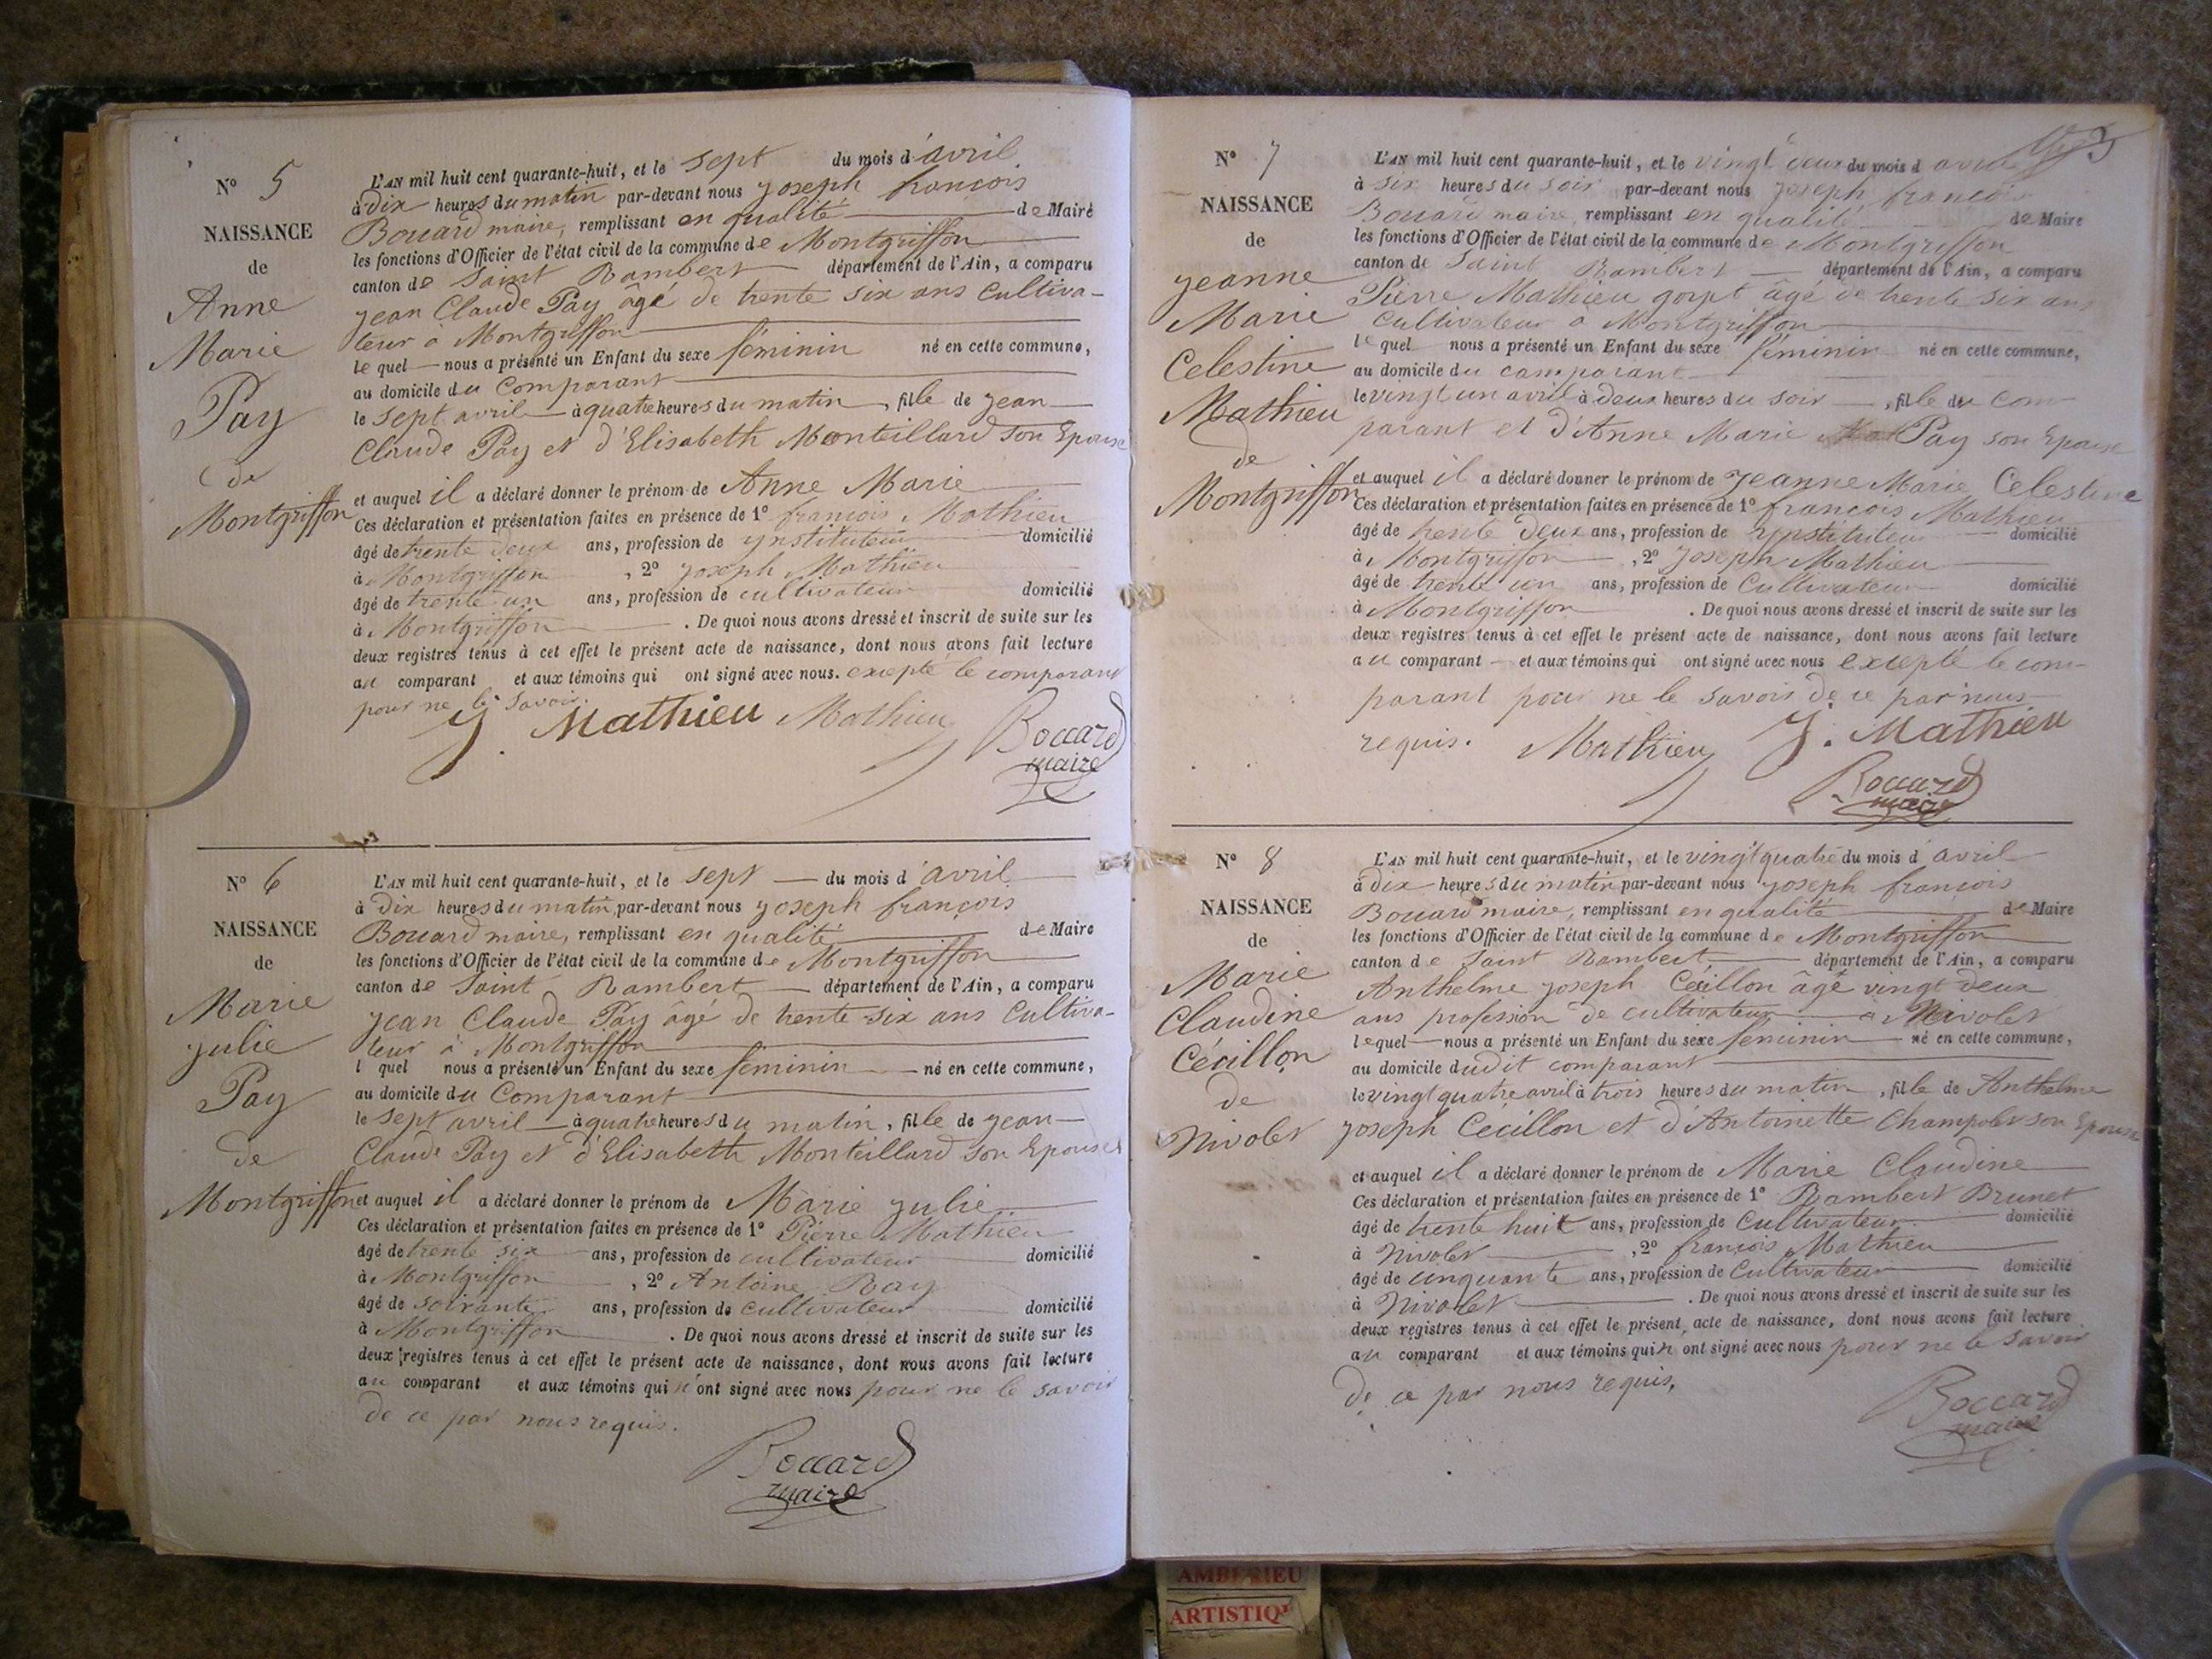 N° 5
NAISSANCE
de
Anne
Marie
Pay
de
Montgriffon
L'AN mil huit cent quarante-huit, et le sept du mois d'avril
à dix heures du matin par-devant nous Joseph françois
Bouard maire, remplissant en qualité de Maire
les fonctions d'Officier de l'état civil de la commune de Montgriffon
canton de Saint Rambert département de l'Ain, a comparu
Jean Claude Pay âgé de trente six ans Cultiva-
teur à Montgriffon
le quel nous a présenté un Enfant du sexe féminin né en cette commune,
au domicile du Comparant
le sept avril à quatre heures du matin, fille de Jean
Claude Pay et d'Elisabeth Monteillard son Epouse
et auquel il a déclaré donner le prénom de Anne Marie
Ces déclaration et présentation faites en présence de 1° françois Mathieu
âgé de trente deux ans, profession de ynstituteur domicilié
à Montgriffon, 2° Joseph Mathieu
âgé de trente un ans, profession de cultivateur domicilié
à Montgriffon. De quoi nous avons dressé et inscrit de suite sur les
deux registres tenus à cet effet le présent acte de naissance, dont nous avons fait lecture
au comparant et aux témoins qui ont signé avec nous. excepté le comparant
pour ne le savoir.
J. Mathieu Mathieu Boccard
maire
N° 6
NAISSANCE
de
Marie
Julie
Pay
de
Montgriffon
L'AN mil huit cent quarante-huit, et le sept du mois d'avril
à Dix heures du matin, par-devant nous Joseph françois
Bouard maire, remplissant en qualité de Maire
les fonctions d'Officier de l'état civil de la commune de Montgriffon
canton de Saint Rambert département de l'Ain, a comparu
Jean Claude Pay âgé de trente six ans Cultiva-
teur à Montgriffon
l quel nous a présenté un Enfant du sexe féminin né en cette commune,
au domicile du Comparant
le sept avril à quatre heures du matin, fille de Jean
Claude Pay et d'Elisabeth Monteillard son Epouse
et auquel il a déclaré donner le prénom de Marie Julie
Ces déclaration et présentation faites en présence de 1° Pierre Mathieu
âgé de trente six ans, profession de cultivateur domicilié
à Montgriffon, 2° Antoine Ray
âgé de soixante ans, profession de cultivateur domicilié
à Montgriffon. De quoi nous avons dressé et inscrit de suite sur les
deux registres tenus à cet effet le présent acte de naissance, dont nous avons fait lecture
au comparant et aux témoins qui n'ont signé avec nous pour ne le savoir
de ce par nous requis.
Boccard
maire
N° 7
NAISSANCE
de
Jeanne
Marie
Celestine
Mathieu
de
Montgriffon
L'AN mil huit cent quarante-huit, et le vingt deux du mois d avril
à six heures du soir par-devant nous Joseph françois
Bouard maire, remplissant en qualité de Maire
les fonctions d'Officier de l'état civil de la commune de Montgriffon
canton de Saint Rambert département de l'Ain, a comparu
Pierre Mathieu âgé de trente six ans
Cultivateur à Montgriffon
le quel nous a présenté un Enfant du sexe féminin né en cette commune,
au domicile du comparant
le vingt un avril à deux heures du soir, fille du com-
parant et d'Anne Marie Pay son Epouse
et auquel il a déclaré donner le prénom de Jeanne Marie Celestine
Ces déclaration et présentation faites en présence de 1° françois Mathieu
âgé de trente deux ans, profession de ynstituteur domicilié
à Montgriffon, 2° Joseph Mathieu
âgé de trente un ans, profession de Cultivateur domicilié
à Montgriffon. De quoi nous avons dressé et inscrit de suite sur les
deux registres tenus à cet effet le présent acte de naissance, dont nous avons fait lecture
au comparant et aux témoins qui ont signé avec nous excepté le com-
parant pour ne le savoir de ce par nous
requis. Mathieu J. Mathieu
Boccard
maire
N° 8
NAISSANCE
de
Marie
Claudine
Cécillon
de
Nivolet
L'AN mil huit cent quarante-huit, et le vingt quatre du mois d'avril
à dix heures du matin par-devant nous Joseph françois
Bouard maire, remplissant en qualité de Maire
les fonctions d'Officier de l'état civil de la commune de Montgriffon
canton de Saint Rambert département de l'Ain, a comparu
Anthelme Joseph Cécillon âgé vingt deux
ans profession de cultivateur à Nivolet
lequel nous a présenté un Enfant du sexe feminin né en cette commune,
au domicile dudit comparant
le vingt quatre avril à trois heures du matin, fille de Anthelme
Joseph Cécillon et d'Antoinette Champolet son Epouse
et auquel il a déclaré donner le prénom de Marie Claudine
Ces déclaration et présentation faites en présence de 1° Rambert Brunet
âgé de trente huit ans, profession de Cultivateur domicilié
à Nivolet, 2° françois Mathieu
âgé de cinquante ans, profession de Cultivateur domicilié
à Nivolet. De quoi nous avons dressé et inscrit de suite sur les
deux registres tenus à cet effet le présent acte de naissance, dont nous avons fait lecture
au comparant et aux témoins qui n ont signé avec nous pour ne le savoir
de ce par nous requis.
Boccard
maire
AMBERIEU
ARTISTIQ